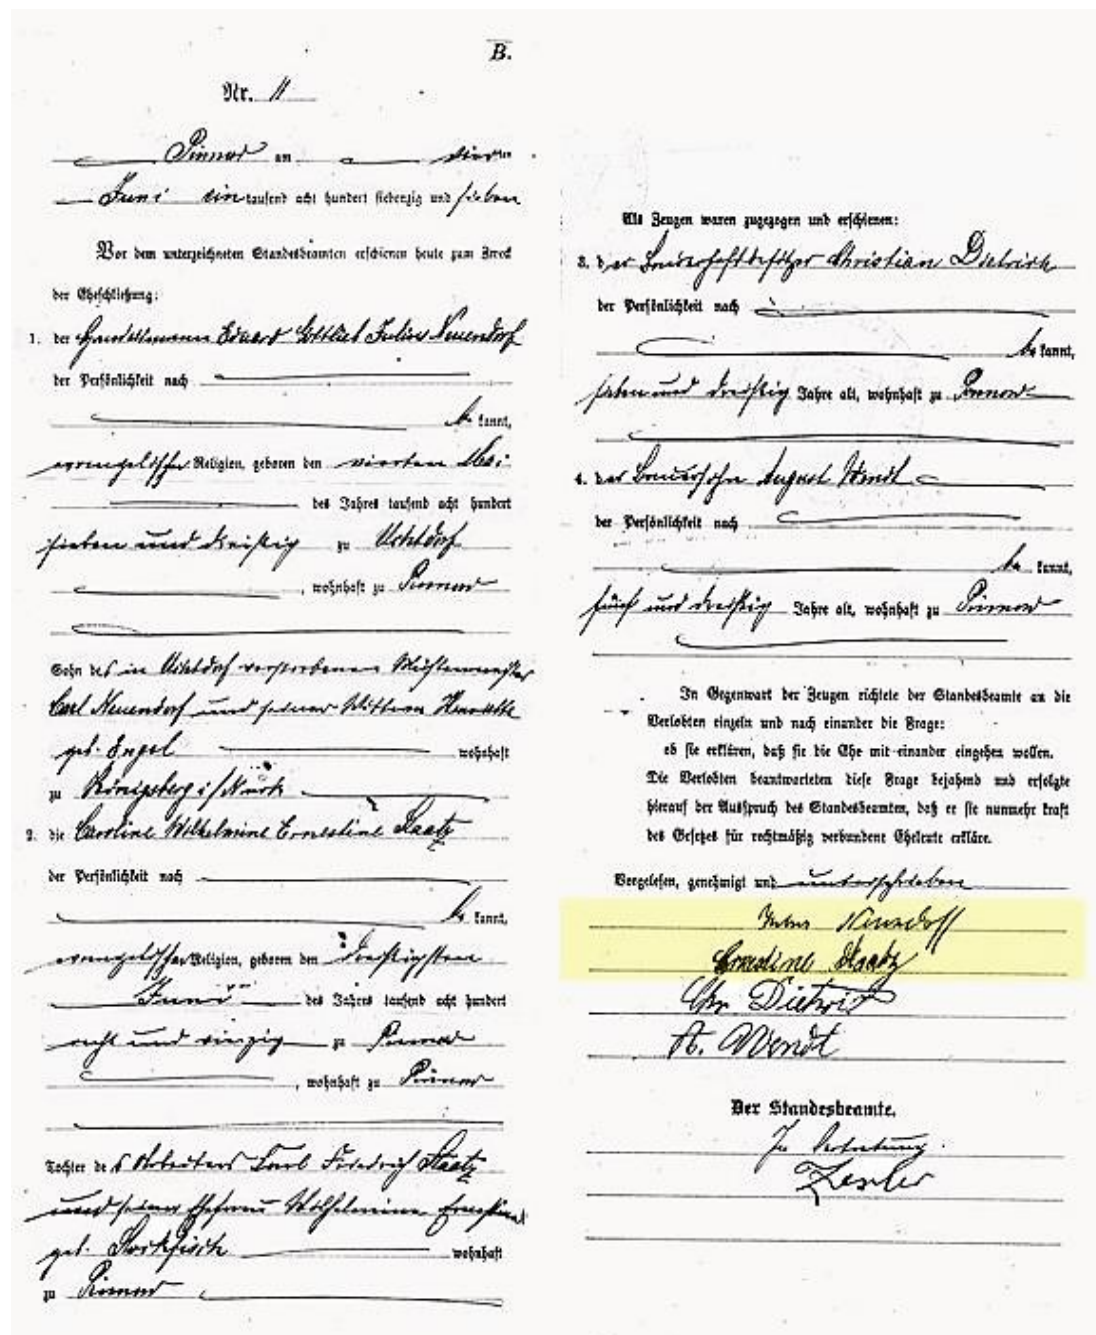 B.
Nr. 11
Pinnow am vier
Juni ein tausend acht hundert siebenzig und sieben
Vor dem unterzeichneten Standesbeamten erschienen heute zum Zweck
der Eheschließung:
1. der Handelsmann Eduard Gottlieb Julius Neuendorf
der Persönlichkeit nach
be kannt,
evangelischer Religion, geboren den vierten Mai
des Jahres tausend acht hundert
sieben und dreißig zu Uchtdorf
, wohnhaft zu Pinnow
Sohn des in Uchtdorf verstorbenen
Carl Neuendorf und seiner Wittwe Henriette
geb. Engel wohnhaft
zu Königsberg i/Mark
2. die Caroline Wilhelmine Ernestine Staatz
der Persönlichkeit nach
be kannt,
evangelischer Religion, geboren den dreißigsten
Juni des Jahres tausend acht hundert
acht und vierzig zu Pinnow
, wohnhaft zu Pinnow
Tochter des Arbeiters Carl Friedrich Staatz
und seiner Ehefrau Wilhelmine Ernestine
geb. Stockfisch wohnhaft
zu Pinnow
Als Zeugen waren zugezogen und erschienen:
3. der Christian Dietrich
der Persönlichkeit nach
be kannt,
sieben und dreißig Jahre alt, wohnhaft zu Pinnow
4. der Bauersohn August Wendt
der Persönlichkeit nach
be kannt,
fünf und dreißig Jahre alt, wohnhaft zu Pinnow
In Gegenwart der Zeugen richtete der Standesbeamte an die
Verlobten einzeln und nach einander die Frage:
ob sie erklären, daß sie die Ehe mit einander eingehen wollen.
Die Verlobten beantworteten diese Frage bejahend und erfolgte
hierauf der Ausspruch des Standesbeamten, daß er sie nunmehr kraft
des Gesetzes für rechtmäßig verbundene Eheleute erkläre.
Vorgelesen, genehmigt und unterschrieben
Julius Neuendorff
Ernestine Staatz
Chr. Dietrich
A. Wendt
Der Standesbeamte.
In Vertretung.